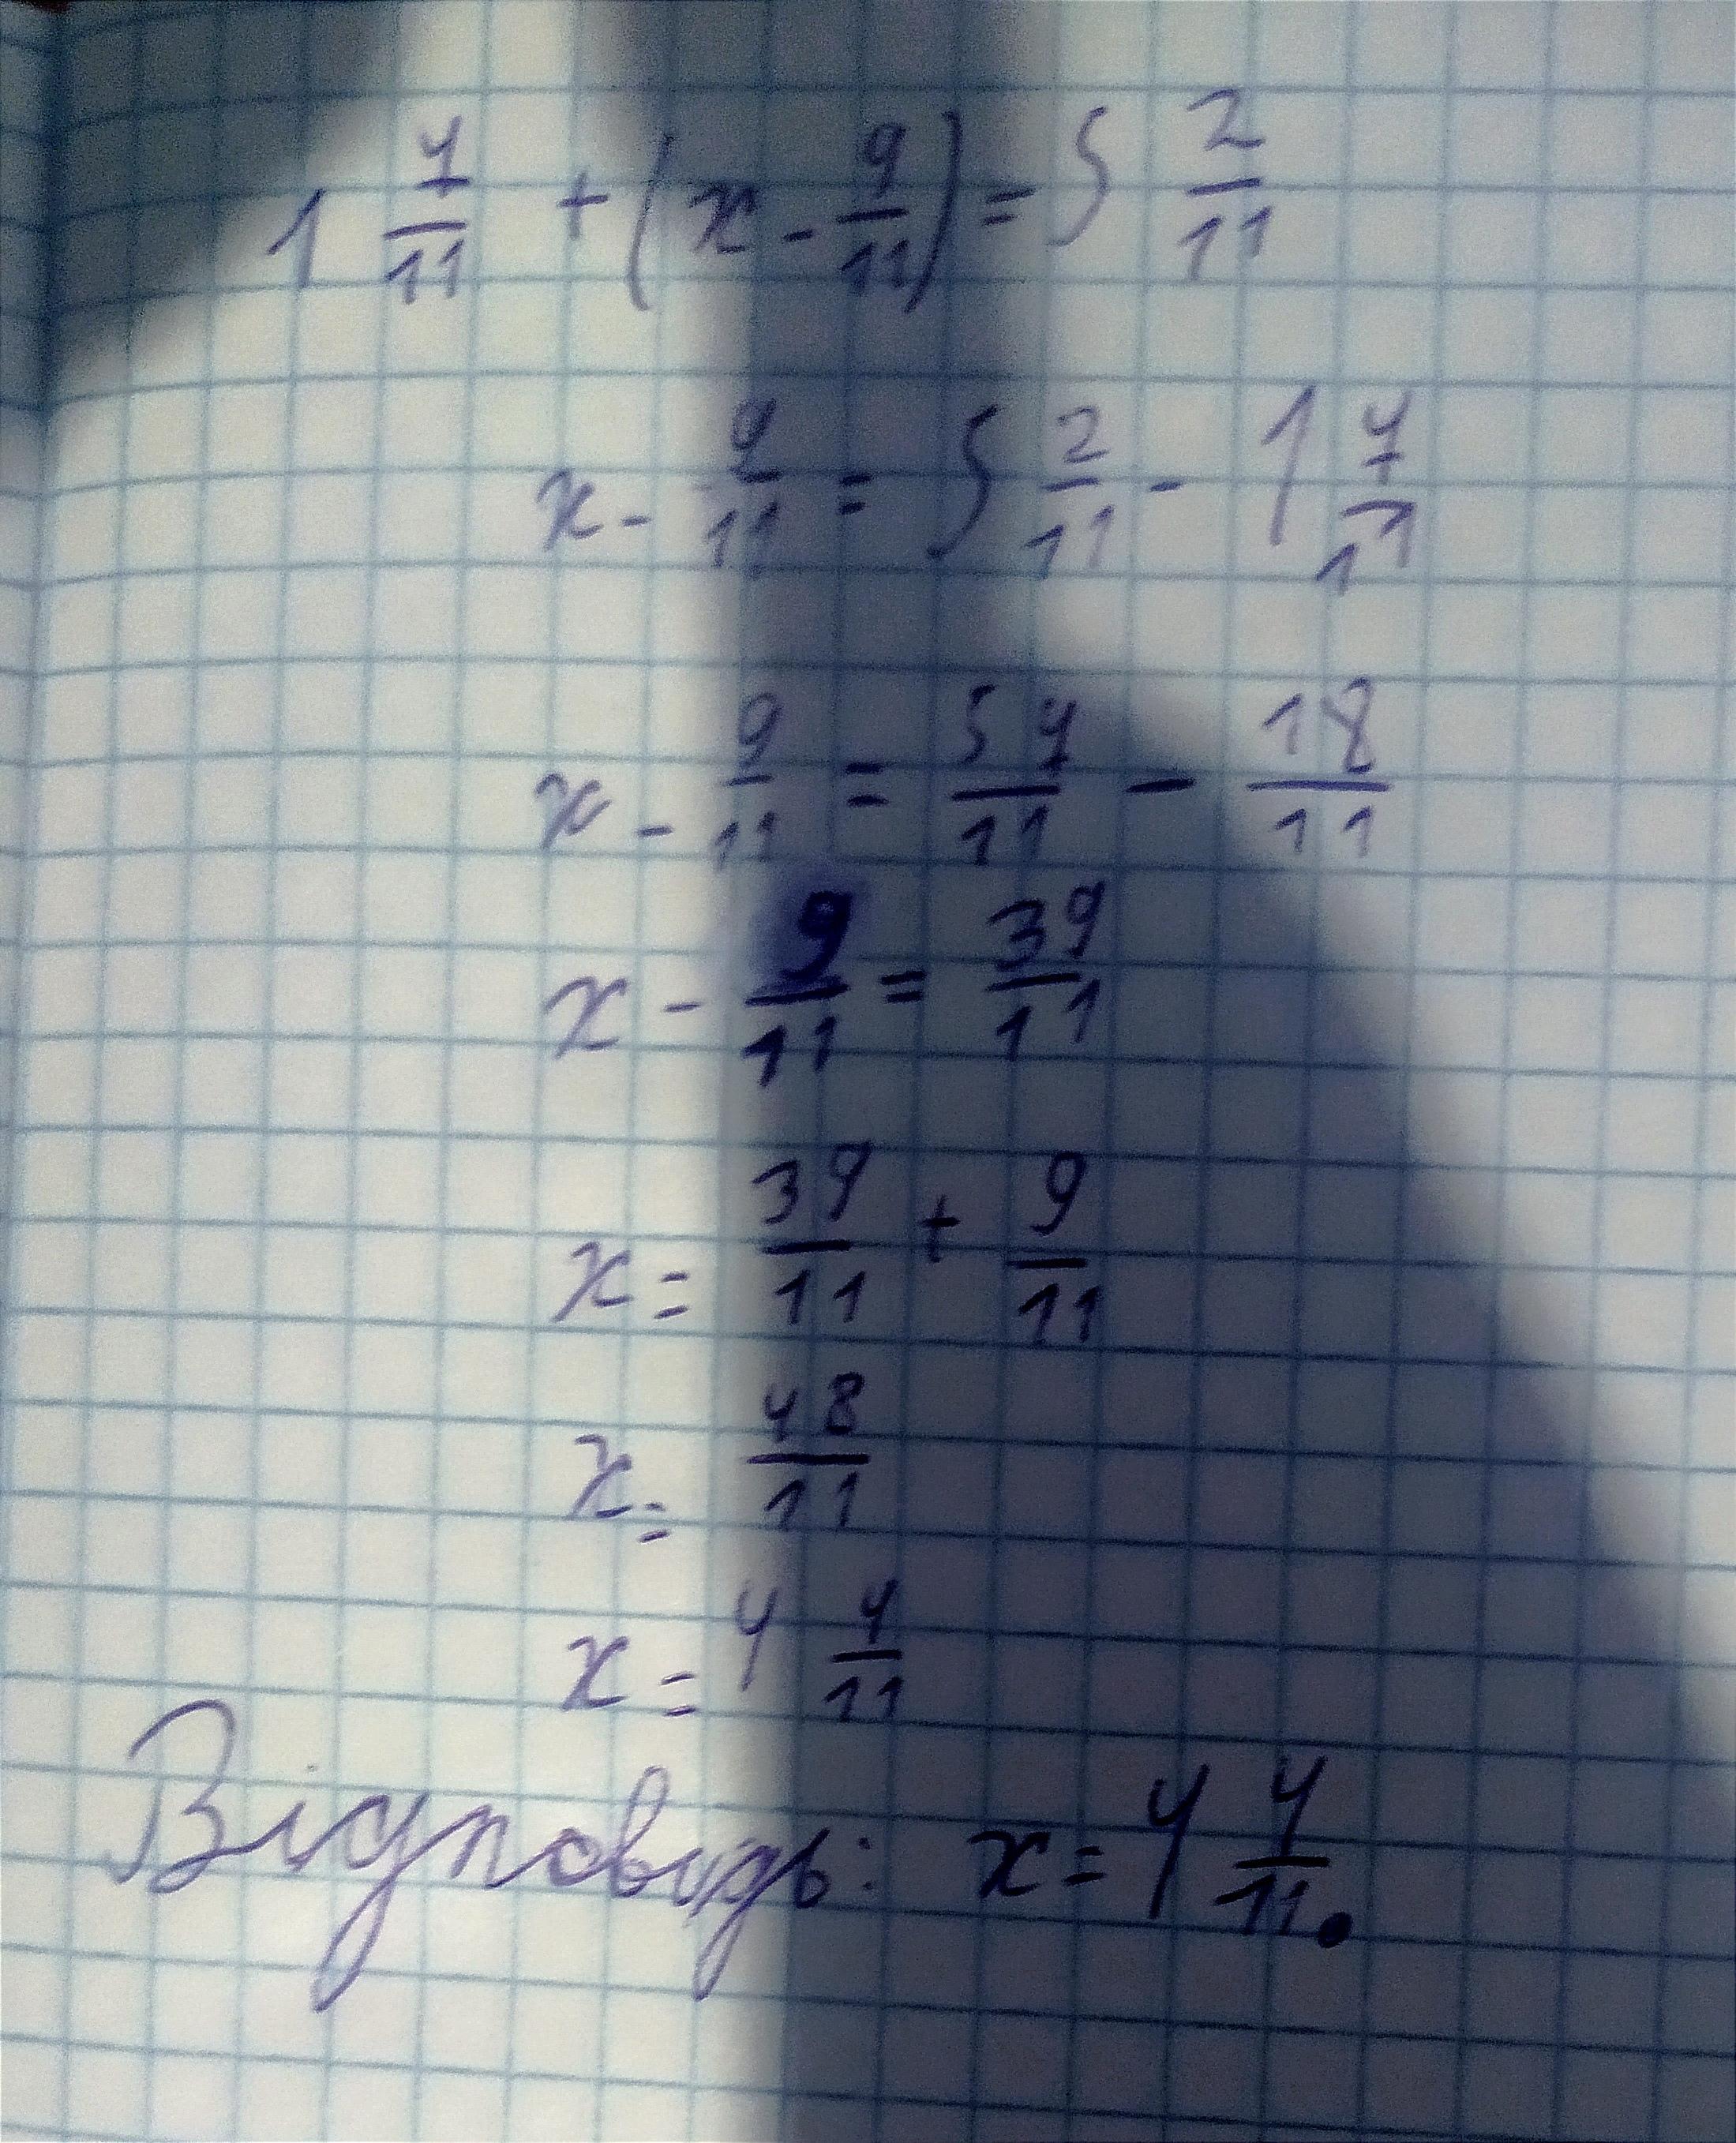 1 7/11 + (x - 9/11) = 5 2/11
x - 9/11 = 5 2/11 - 1 7/11
x - 9/11 = 57/11 - 18/11
x - 9/11 = 39/11
x = 39/11 + 9/11
x = 48/11
x = 4 4/11
Відповідь: x = 4 4/11.